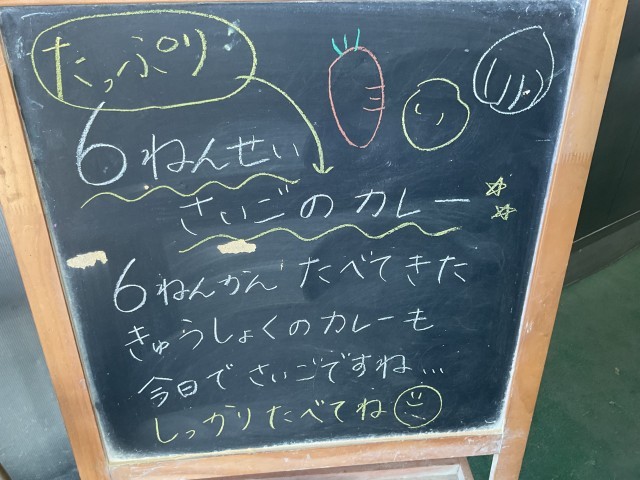 たっぷり
6ねんせい
さいごのカレー
6ねんかん たべてきた
きゅうしょくのカレーも
今日で さいごですね...
しっかりたべてね